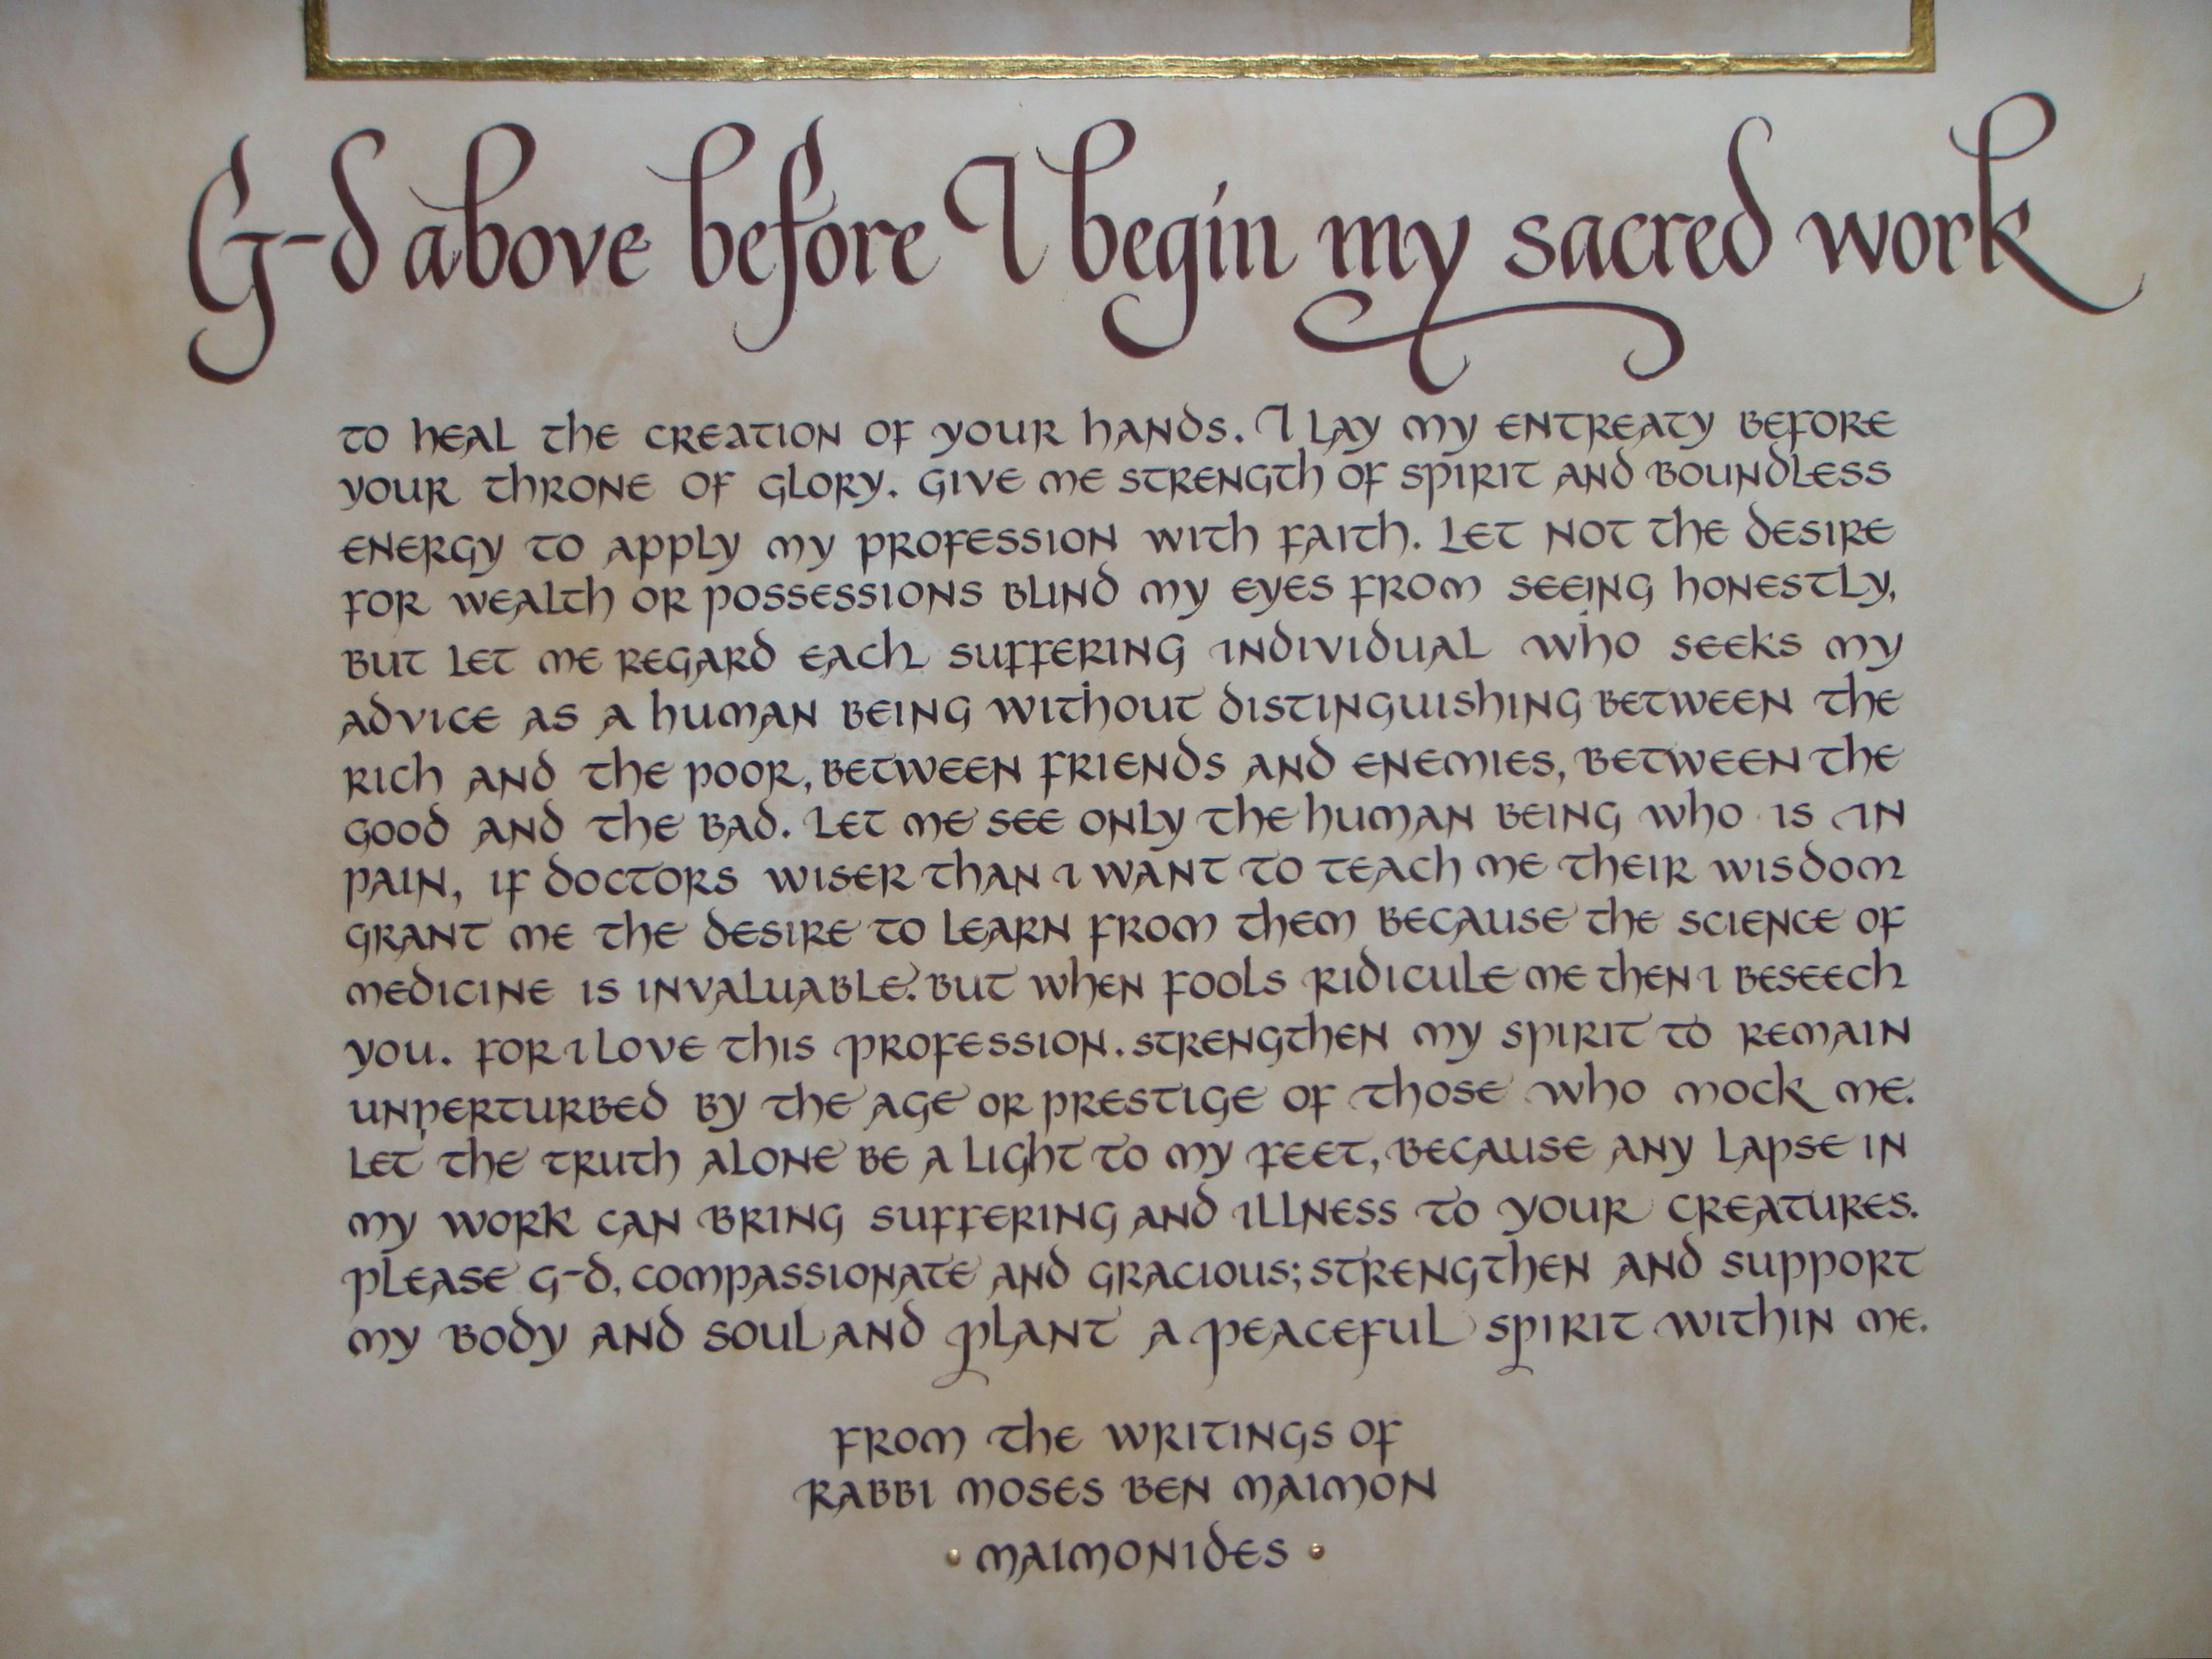 G-d above before I begin my sacred work
to heal the creation of your hands. I lay my entreaty before
your throne of glory. Give me strength of spirit and boundless
energy to apply my profession with faith. Let not the desire
for wealth or possessions blind my eyes from seeing honestly,
but let me regard each suffering individual who seeks my
advice as a human being without distinguishing between the
rich and the poor, between friends and enemies, between the
good and the bad. Let me see only the human being who is in
pain, if doctors wiser than I want to teach me their wisdom
grant me the desire to learn from them because the science of
medicine is invaluable. But when fools ridicule me then I beseech
you. For I love this profession. Strengthen my spirit to remain
unperturbed by the age or prestige of those who mock me.
Let the truth alone be a light to my feet, because any lapse in
my work can bring suffering and illness to your creatures.
Please G-d, compassionate and gracious; strengthen and support
my body and soul and plant a peaceful spirit within me.
From the writings of
Rabbi Moses Ben Maimon
· Maimonides ·